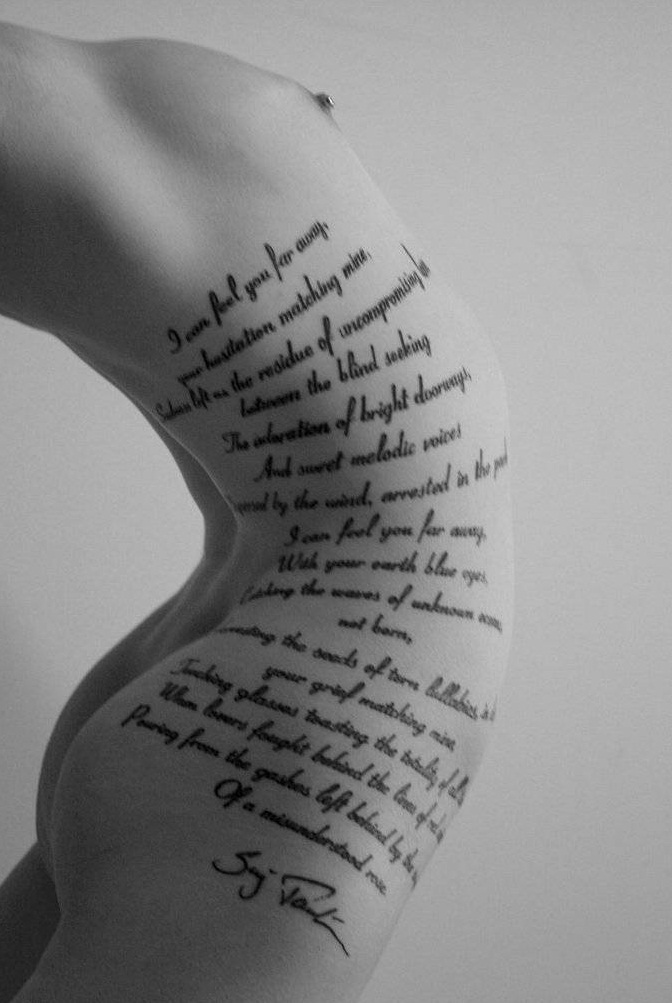 I can feel you far away,
your hesitation matching mine,
Sadness left as the residue of uncompromising
between the blind seeking
The adoration of bright doorways,
And sweet melodic voices
by the wind, arrested in the
I can feel you far away,
With your earth blue eyes,
Catching the waves of unknown
not born,
the seeds of torn lullabies,
your grief matching mine
Touching glasses toasting the totality of
When lovers fought behind the lines of
Pouring from the gashes left behind by the
Of a misunderstood rose